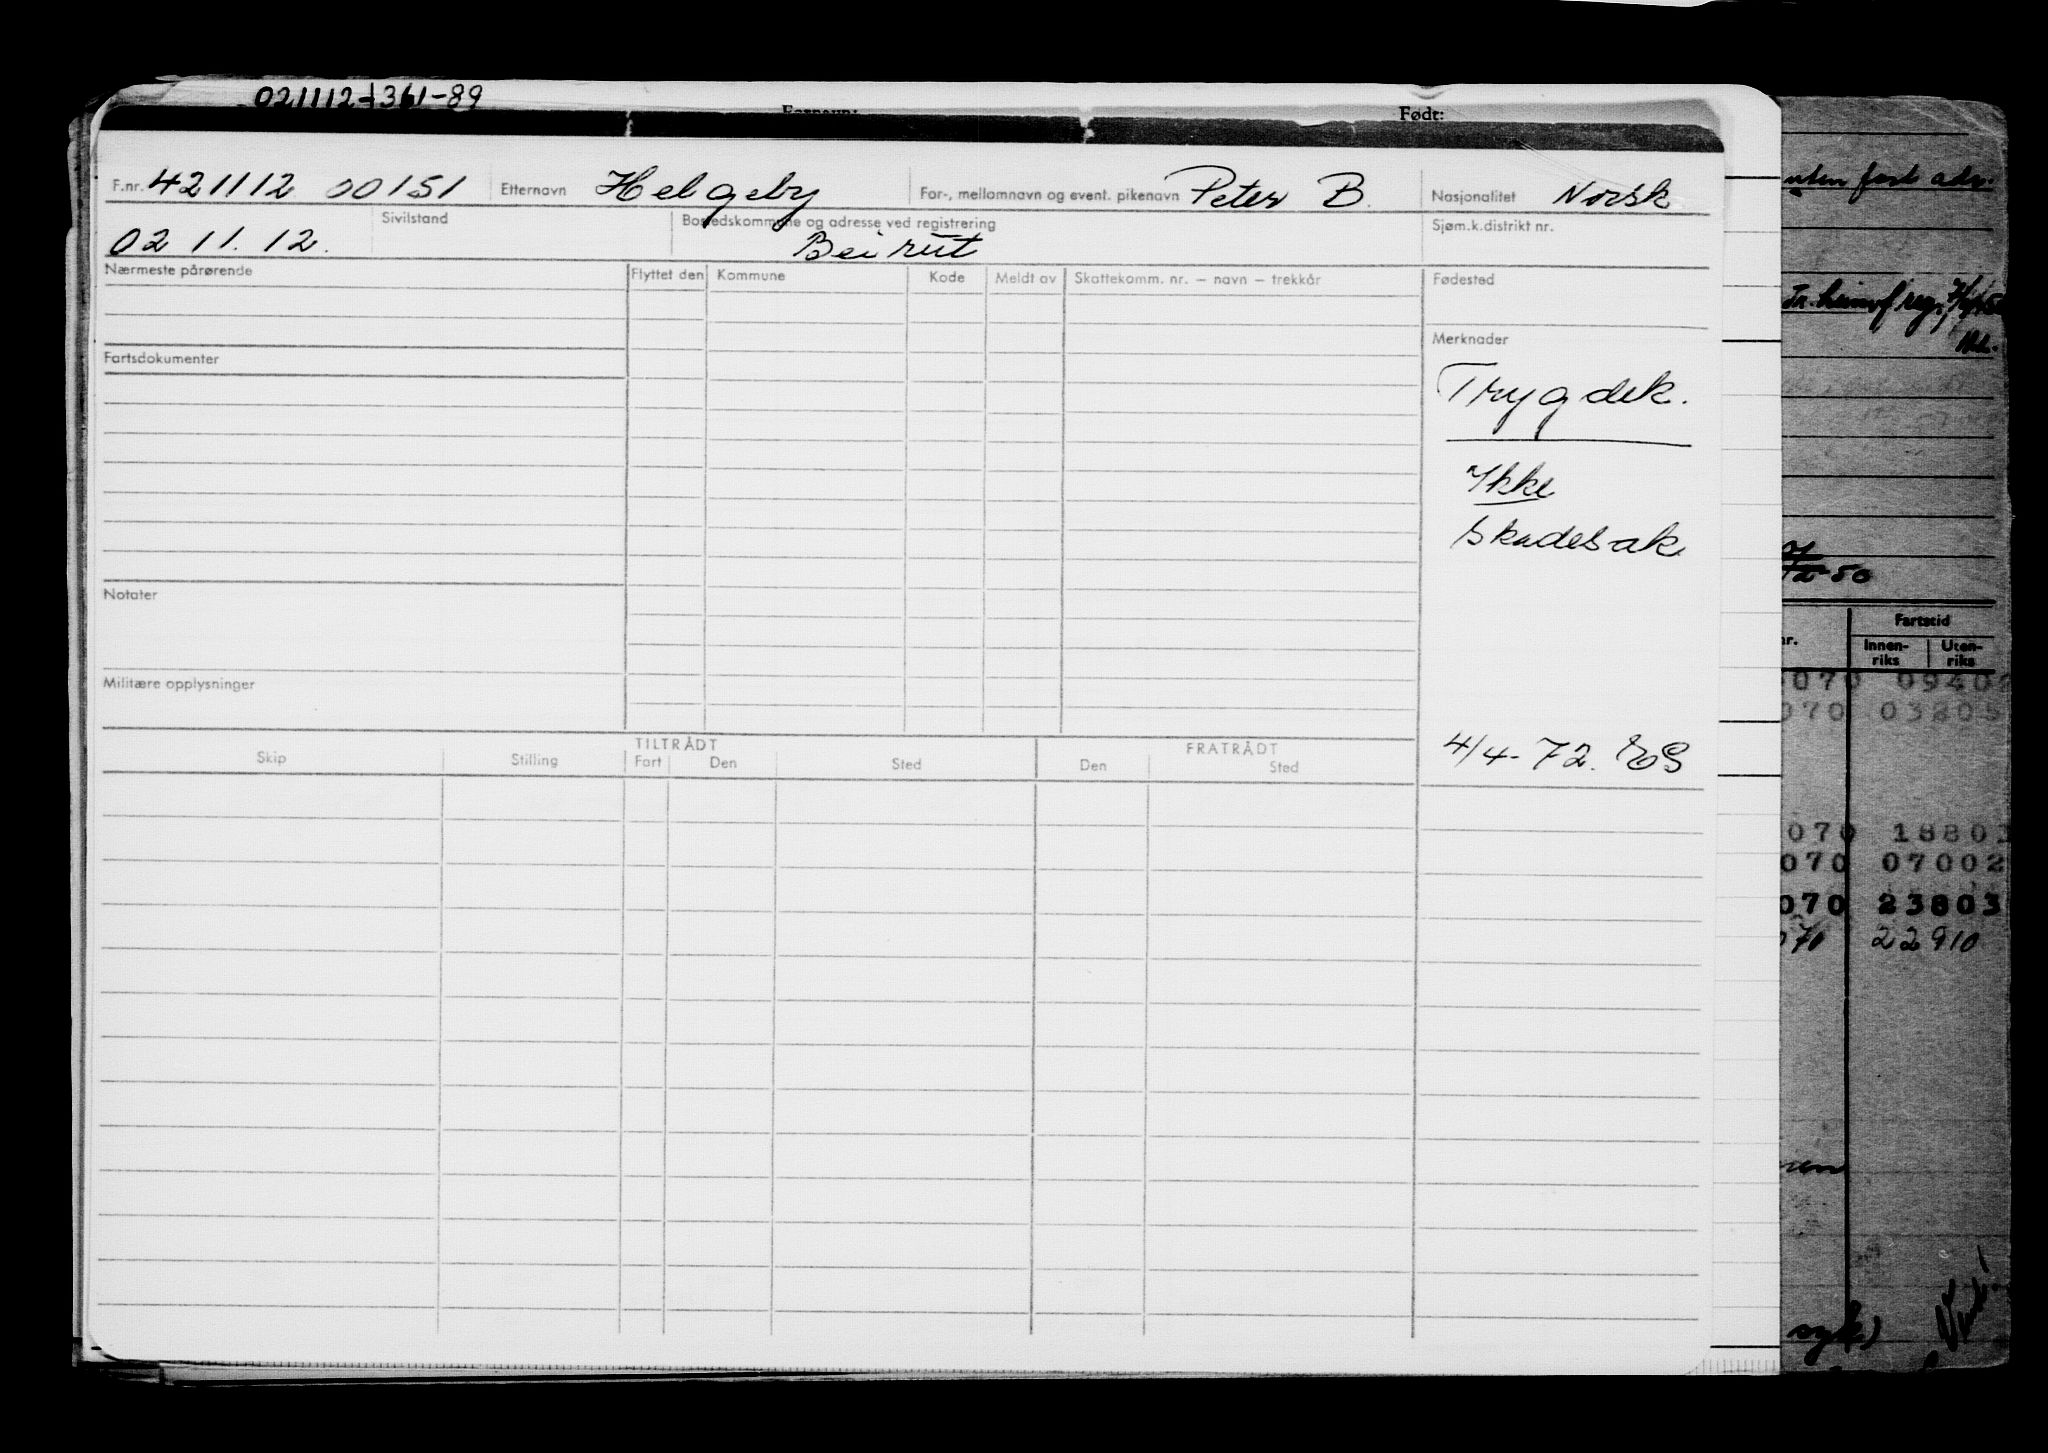 021112+361-89
Fornavn: Født:
F.nr. 421112 00151 Etternavn Helgeby For-, mellomnavn og event. pikenavn Peter B. Nasjonalitet Norsk
02 11. 12. Sivilstand Bostedskommune og adresse ved registrering Beirut Sjøm.k.distrikt nr.
Nærmeste pårørende Flyttet den Kommune Kode Meldt av Skattekomm. nr. – navn – trekkår Fødested
Merknader
Fartsdokumenter
Trygdek.
Ikke
skadesak
Notater
Militære opplysninger
4/4-72.
TILTRÅDT FRATRÅDT
Skip Stilling Fart Den Sted Den Sted
uten fast adr.
12-50
nr. Fartstid
Innen-
riks Uten-
riks
070 0940
070 03805
070 1880
070 07002
070 23803
070 22910